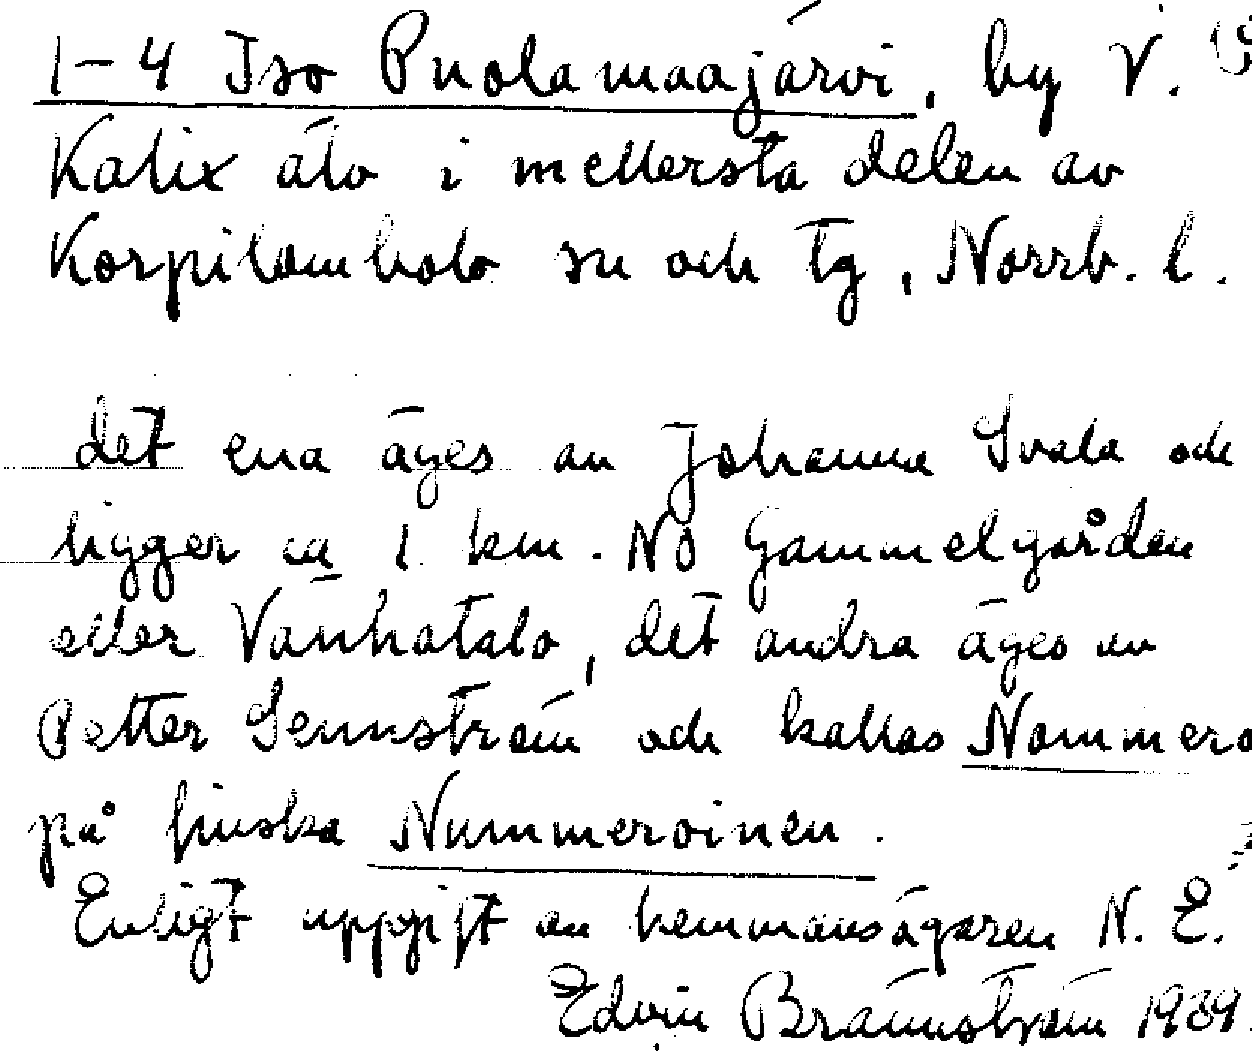 1-4 Iso Puolamaajärvi, by V.
Kalix älv i mellersta delen av
Korpilombolo sn och tg, Norrb. l.
det ena äges av Johanna Svala och
ligger ca 1 km. NÖ Gammelgården
eller Vanhatalo, det andra äges av
Petter Sennström och kallas Nommero
på finska Nummeroinen.
Enligt uppgift av hemmansägaren N. E.
Edvin Brännström 1939.